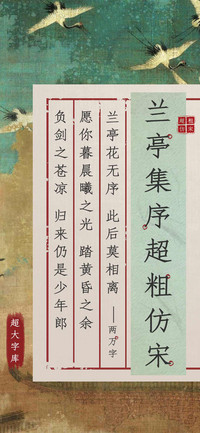 兰亭集序超粗仿宋
兰亭花无序 此后莫相离 ——两万字
愿你暮晨曦之光 踏黄昏之余
负剑之苍凉 归来仍是少年郎
超大字库